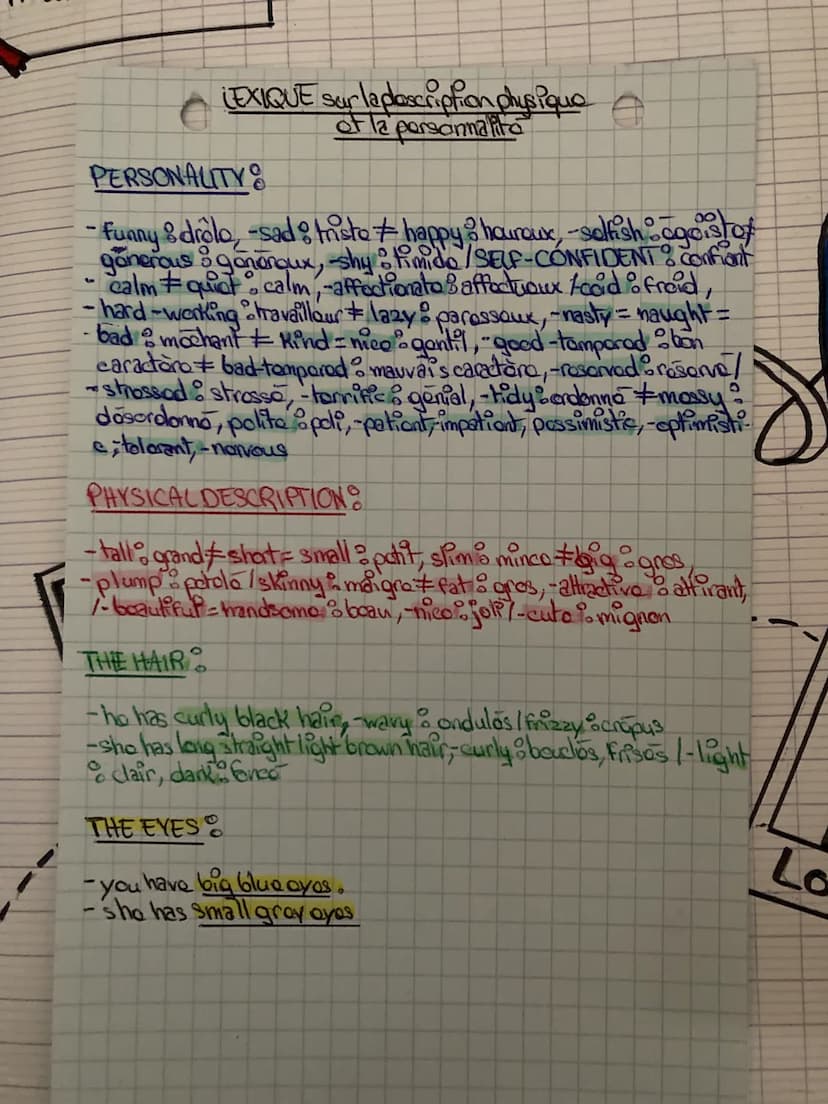 LEXIQUE sur la description physique
et la personnalité
PERSONALITY :
- funny : drôle, - sad : triste ≠ happy : heureux, - selfish : égoïste ≠
generous : généreux, - shy : timide / SELF-CONFIDENT : confiant
- calm ≠ quiet : calm, - affectionate : affectueux / cold : froid,
- hard-working : travailleur ≠ lazy : paresseux, - nasty = naught =
- bad : méchant ≠ kind = nice : gentil, - good-tempered : bon
caractère ≠ bad-tempered : mauvais caractère, - reserved : réservé /
- stressed : stressé, - terrific : génial, - tidy : ordonné ≠ messy :
désordonné, polite : poli, - patient, - impatient, pessimistic, - optimisti-
c, - tolerant, - nervous
PHYSICAL DESCRIPTION :
- tall : grand ≠ short = small : petit, slim : mince ≠ big : gros,
- plump : potelé / skinny : maigre ≠ fat : gros, - attractive : attirant,
/ - beautiful = handsome : beau, - nice : joli / - cute : mignon
THE HAIR :
- he has curly black hair, - wavy : ondulés / frizzy : crépus
- she has long straight light brown hair, - curly : bouclés, frisés / - light
: clair, dark : foncé
THE EYES :
- you have big blue eyes.
- she has small grey eyes
Lo